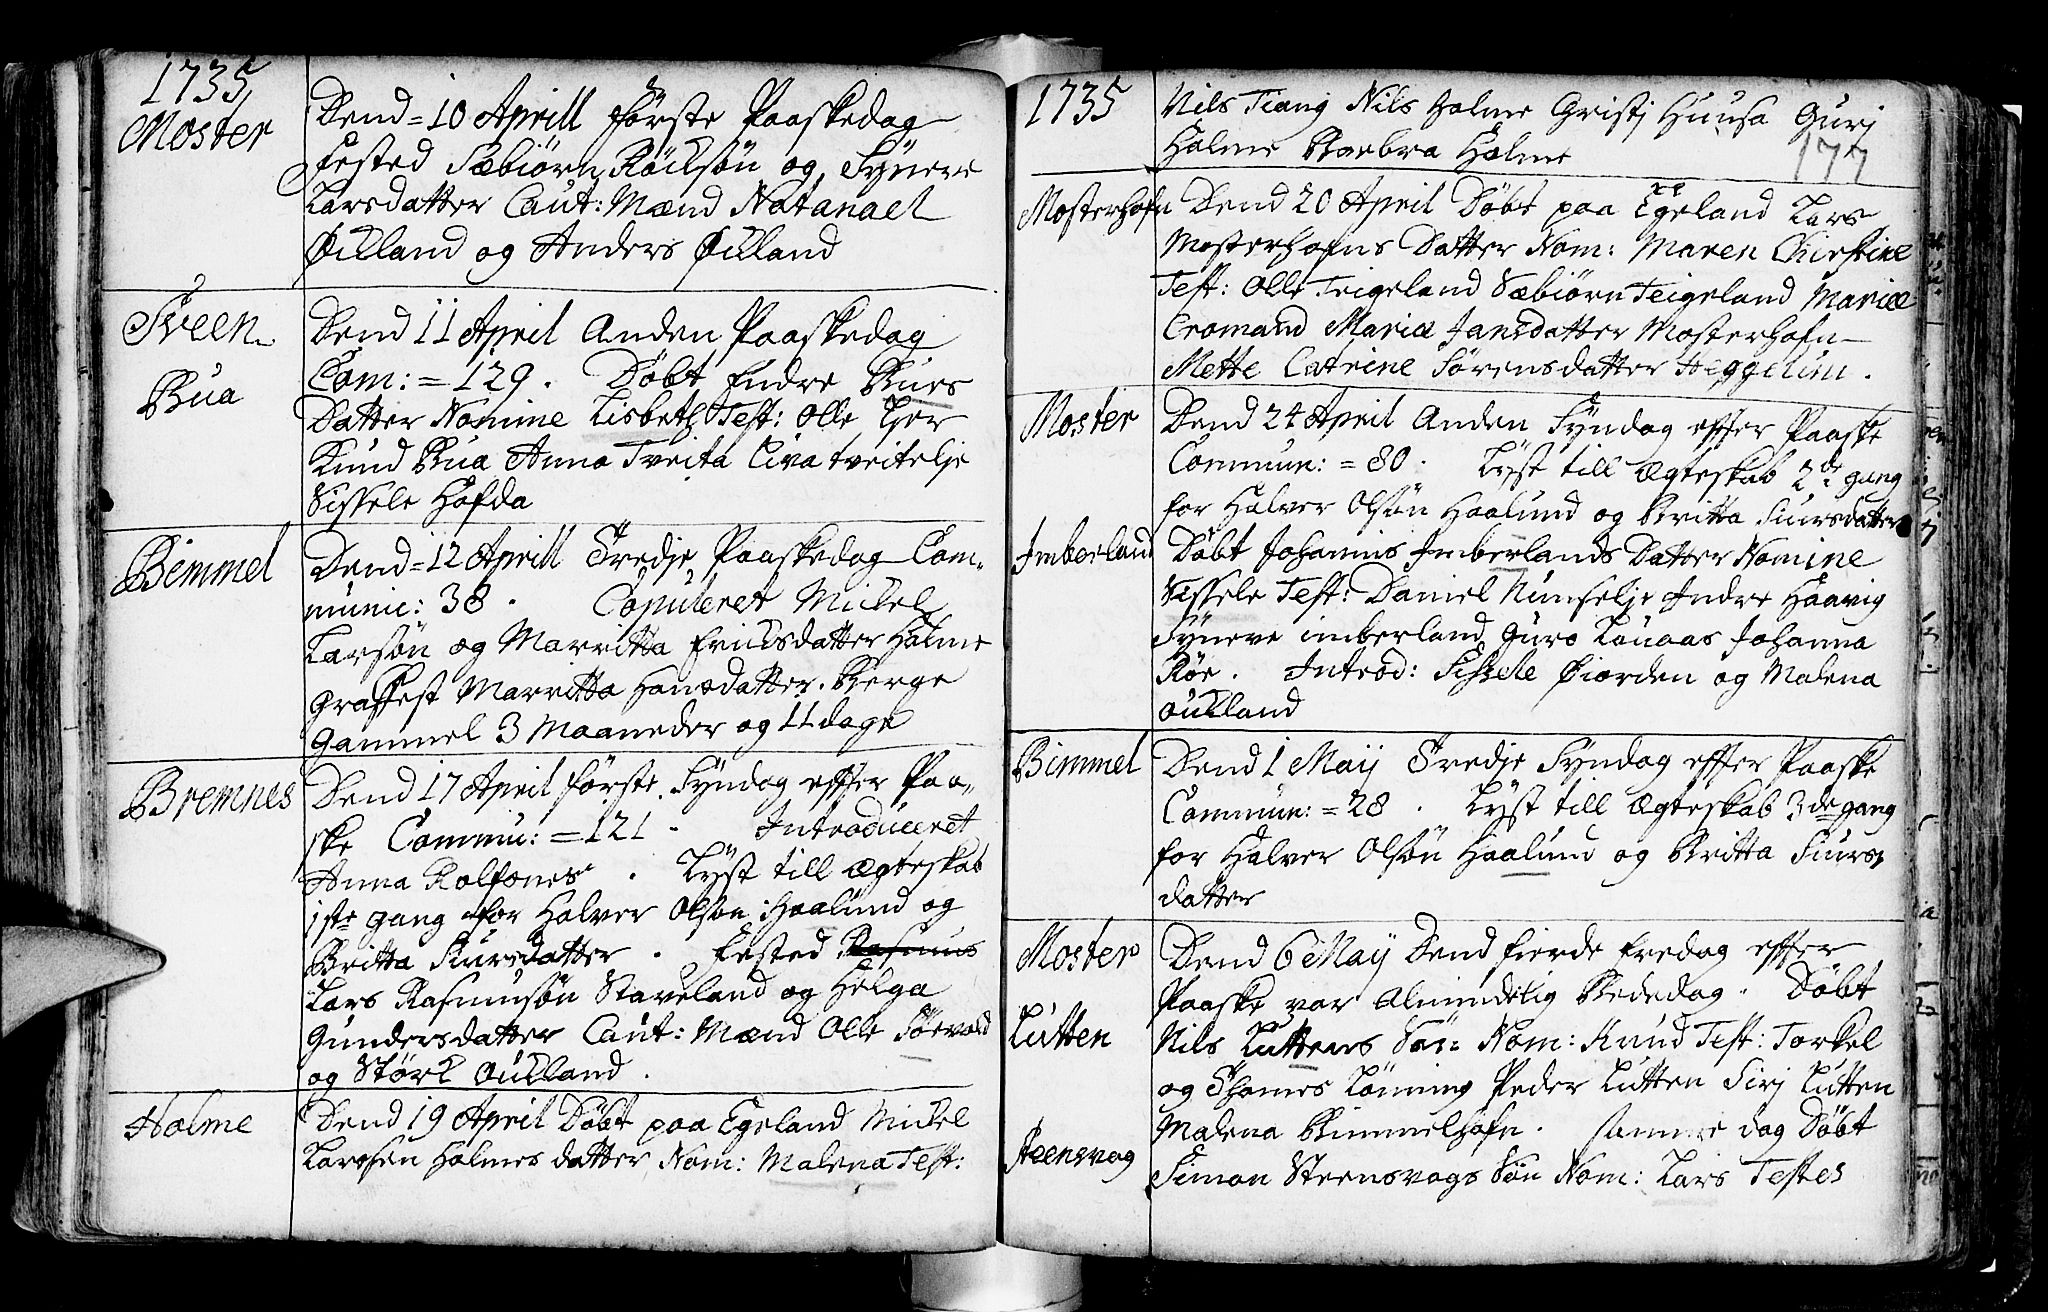 1735
Moster
Dend = 10 Aprill Første Paaskedag
Fested Sæbiørn Röilsøn og Synneve
Larsdatter Caut: Mænd Natanael
Øilland og Anders Øilland
Sveen
Bua
Dend 11 April Anden Paaskedag
Com: = 129. Döbt Endre Bues
Datter Nomine Lisbeth Test: Olle
Knud Bua Anna Tveita Civa tveitelje
Sissele Hofda
Bemmel
Dend = 12 Aprill Tredje Paaskedag Com,,
munic: 38. Copuleret Mickel
Larsøn og Marritta Ericksdatter Holme
Graffest Marritta Hansdatter Berge
Gammel 3 Maaneder og 11 dage
Bremnes
Dend 17 April første Syndag effter Paa,,
ske Commu: = 121. Introduceret
Anna Rolfsnes. Lyst till Ægteskab
1ste gang for Halver Olsøn Haalund og
Britta Siursdatter. Fested Rasmus
Lars Rasmusøn Staveland og Helga
Gundersdatter Caut: Mænd Olle Söevold
og Störk Oukland.
Holme
Dend 19 April Döbt paa Egeland Mickel
Larssen Holmes datter Nom: Malena Test:
1735
Nils Tiang Nils Holme Gristj Huusa Gurj
Holme Barbra Holme
177
Mosterhafn
Dend 20 April Döbt paa Egeland Lars
Mosterhafns Datter Nom: Maren Chirstine
Test: Olle Teigeland Sæbiørn Teigeland Mariæ
Cromand Mariæ Jansdatter Mosterhafn
Mette Catrine Sørensdatter Heggelun.
Moster
Dend 24 April Anden Syndag effter Paaske
Commun: = 80. Lyst till Ægteskab 2de gang
for Halver Olsøn Haalund og Britta Siursdatter
Imberland
Döbt Johannis Imberlands Datter Nomine
Sissele Test: Daniel Nunselje Indre Haavig
Syneve imberland Guro Louaas Johanna
Röe. Introd: Sissele Øiorden og Malena
Oukland
Bimmel
Dend 1 Maij Tredje Syndag effter Paaske
Commun: = 28. Lyst till Ægteskab 3de gang
for Halver Olsøn Haalund og Britta Siurs,,
datter
Moster
Dend 6 Maij Dend Fierde Fredag effter
Paaske var Almindelig Bededag. Döbt
Lutten
Nils Luttens Søn Nom: Knud Test: Torkel
og Thomes Löning Peder Lutten Sirj Lutten
Malena Bimmelhafn. samme dag Döbt
Steensvag
Simon Steensvogs Søn Nom: Lars Testes